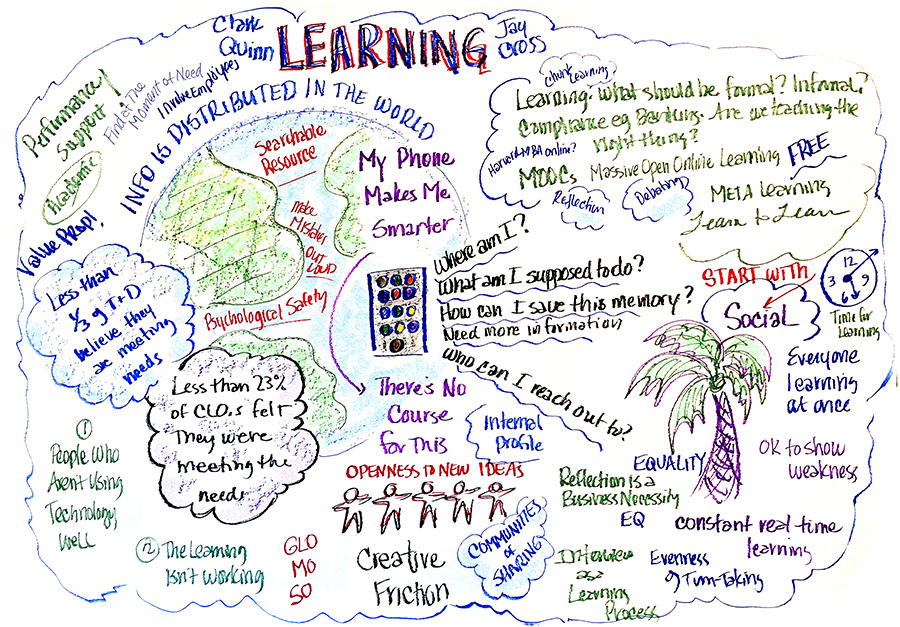 Clark
Quinn
LEARNING
Jay
Cross
Performance
Support
Find at The
Moment of Need
Involve Employees
Academic
INFO IS DISTRIBUTED IN THE WORLD
Value Prop!
Searchable
Resource
Make
Mistakes
OUT
LOUD
Psychological Safety
My Phone
Makes Me
Smarter
Chunk Learning
Learning: What should be formal? Informal?
Compliance eg Banking. Are we teaching the
right thing?
Harvard MBA online?
MOOCs Massive Open Online Learning
FREE
Reflection
Debating
META Learning
Learn to Learn
Where am I?
What am I supposed to do?
How can I save this memory?
Need more information
Who can I reach out to?
START WITH
Social
12
3
9
6
Time for
Learning
Everyone
learning
at once
OK to show
weakness
Less than
1/3 of T+D
believe they
are meeting
needs
Less than 23%
of CLO.s felt
They were
meeting the
needs
There's No
Course
for This
Internal
Profile
①
People Who
Aren't Using
Technology
Well
② The Learning
Isn't working
GLO
MO
SO
OPENNESS TO NEW IDEAS
Creative
Friction
COMMUNITIES
OF
SHARING
EQUALITY
Reflection is a
Business Necessity
EQ
constant real time
learning
Interview
as a
Learning
Process
Evenness
of Turn-Taking